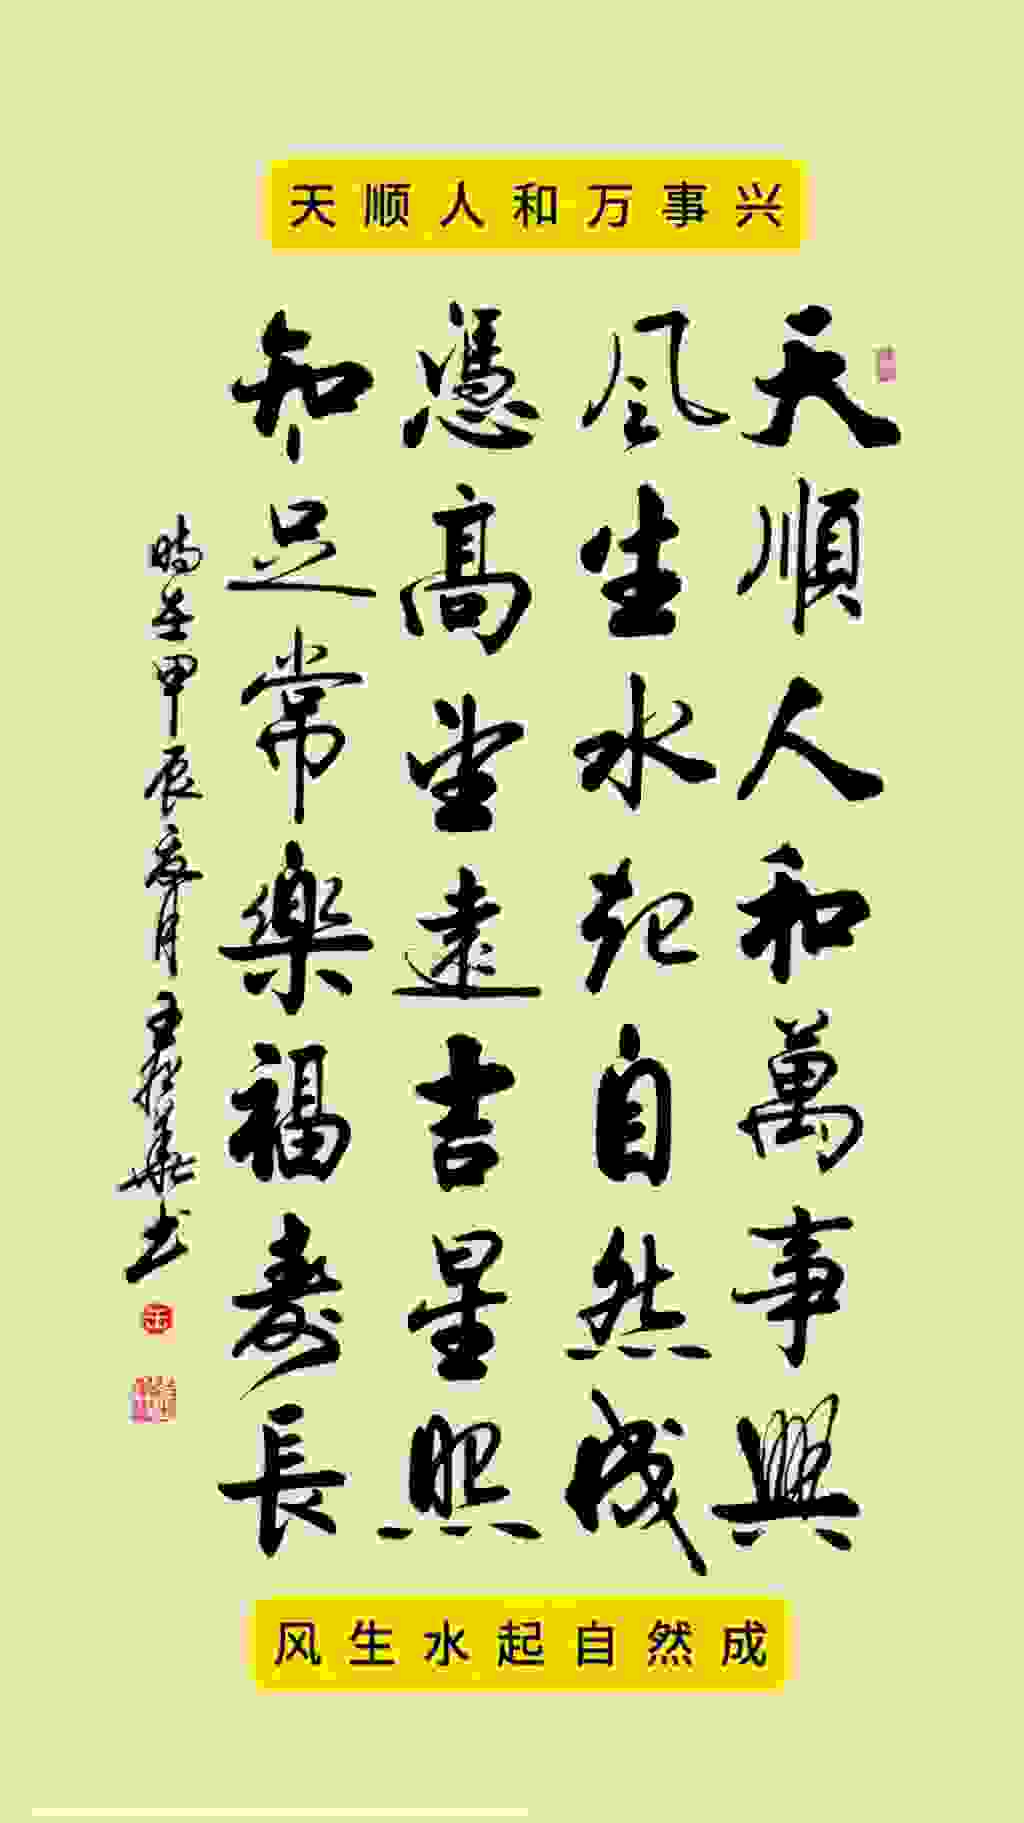 天顺人和万事兴
天順人和萬事興
風生水起自然成
憑高望遠吉星照
知足常樂福壽長
時在甲辰年春月王華书
风生水起自然成